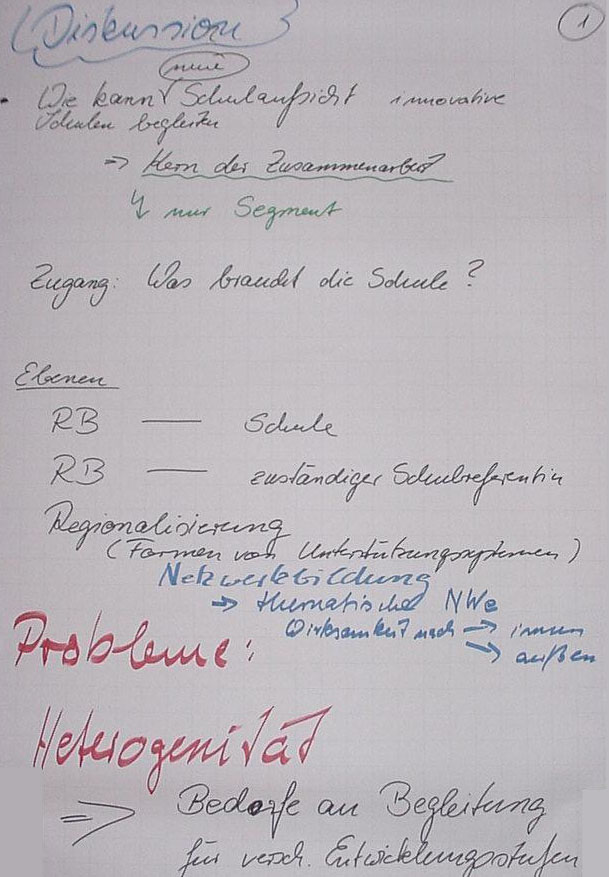 Diskussion
1
neue
• Wie kann Schulaufsicht innovative
Schulen begleiten
⇒ Kern der Zusammenarbeit
↳ nur Segment
Zugang: Was braucht die Schule?
Ebenen
RB — Schule
RB — zuständiger Schulreferentin
Regionalisierung
(Formen von Unterstützungssystemen)
Netzwerkbildung
⇒ thematische NWe
Wirksamkeit nach → innen
→ außen
Probleme:
Heterogenität
⇒ Bedarfe an Begleitung
für versch. Entwicklungsstufen